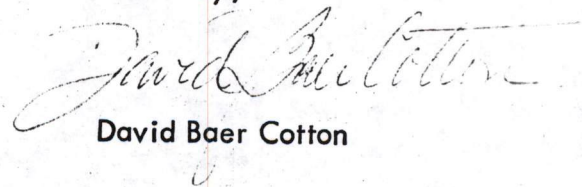 David Baer Cotton
David Baer Cotton